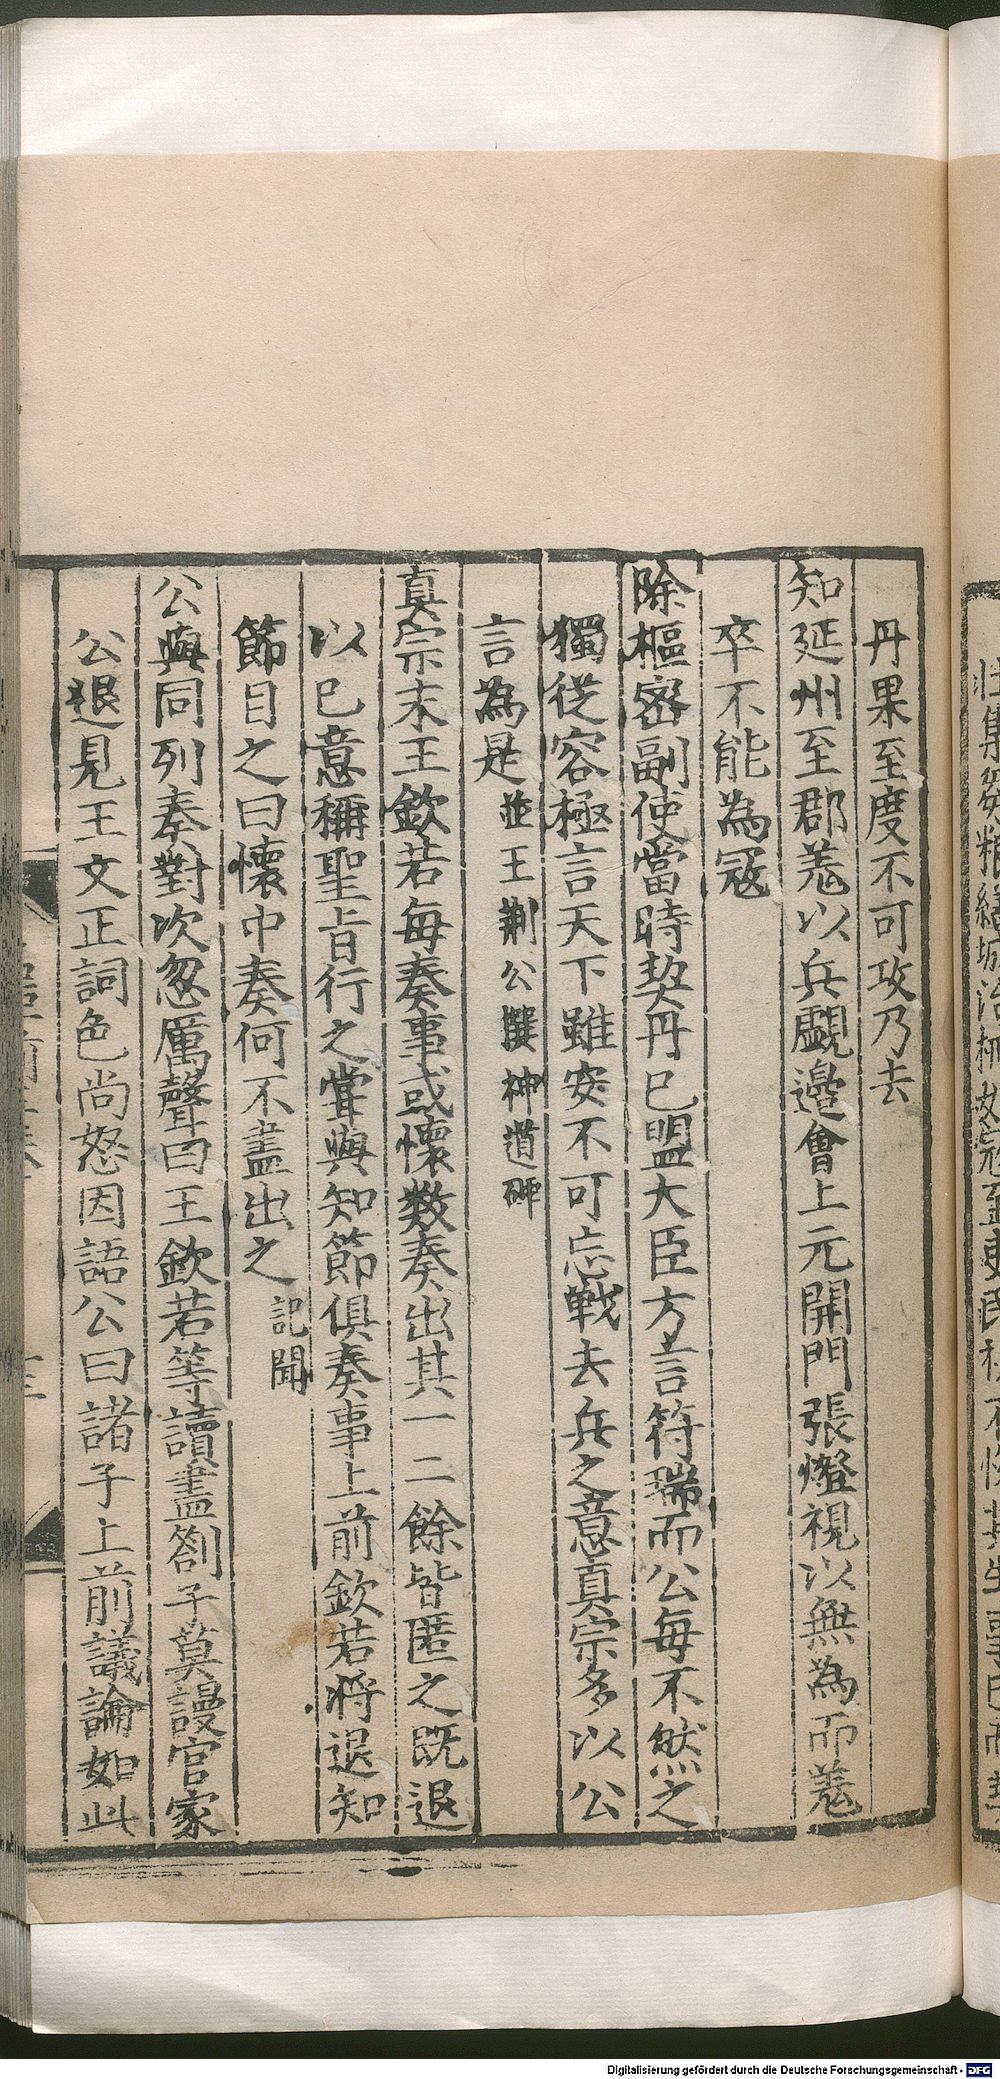 丹果至度不可攻乃去
知延州至郡羌以兵覷邉會上元開門張燈視以無為而羌
卒不能為冦
除樞密副使當時契丹已盟大臣方言符瑞而公每不然之
獨從容極言天下雖安不可忘戰去兵之意真宗多以公
言為是並王荆公撰神道碑
真宗末王欽若每奏事或懷数奏出其一二餘皆匿之既退
以已意稱聖旨行之甞與知節俱奏事上前欽若將退知
節目之曰懷中奏何不盡出之記聞
公與同列奏對次忽厲聲曰王欽若等讀盡劄子莫謾官家
公退見王文正詞色尚怒因語公曰諸子上前議論如此
Digitalisierung gefördert durch die Deutsche Forschungsgemeinschaft - DFG